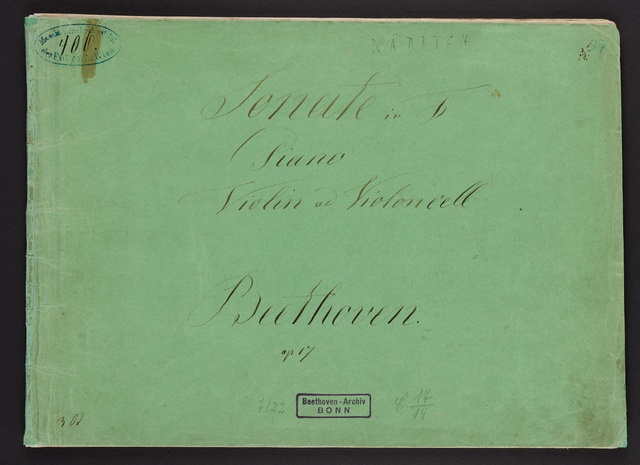 400.
NARITCH
Sonate in F
Piano
Violin ad Violoncell
Beethoven.
op 17
Beethoven-Archiv
BONN
17
14